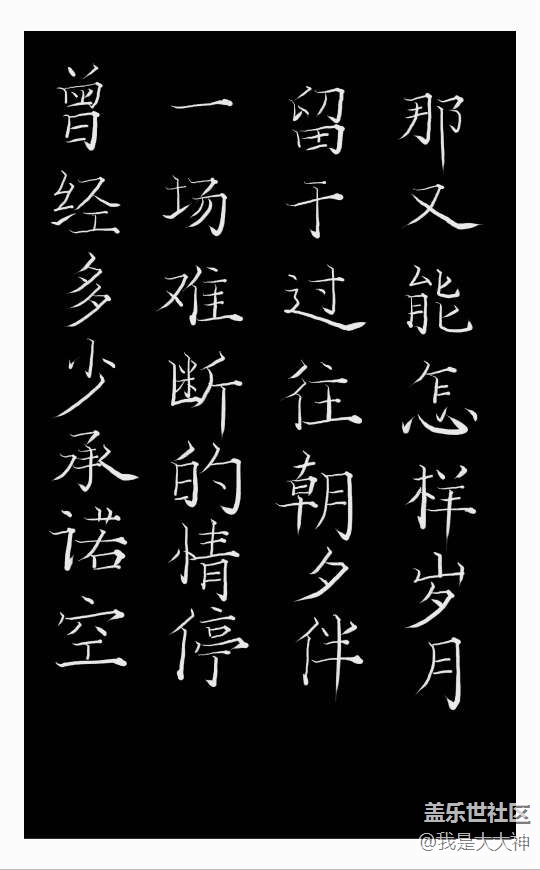 那又能怎样岁月
留于过往朝夕伴
一场难断的情停
曾经多少承诺空
盖乐世社区
@我是大大神